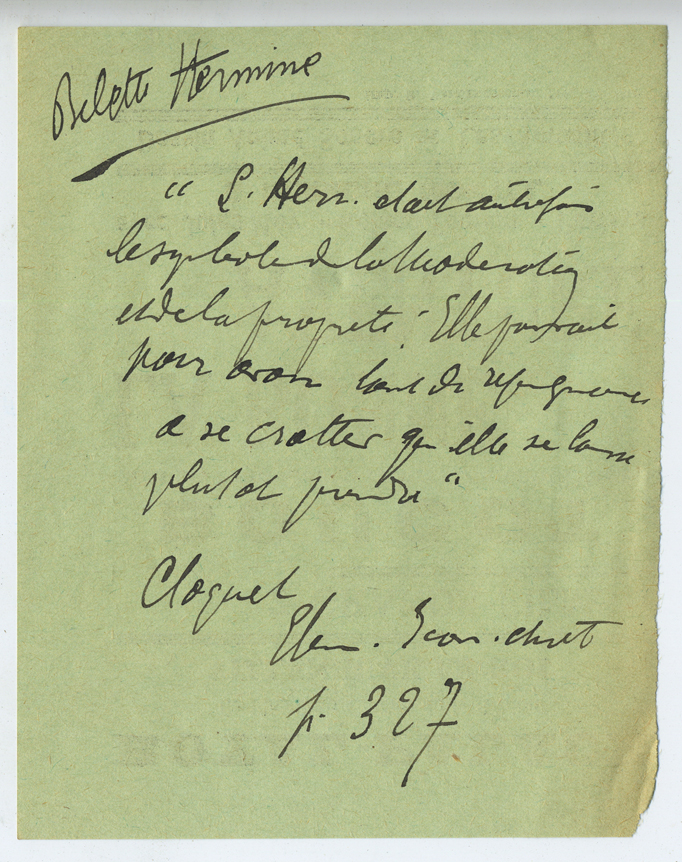 Belette Hermine
"L. Herm. etait autrefois
le symbole de la Moderation
et de la proprete". Elle passait
pour avoir tant de repugnance
a se crotter qu'elle se laisse
plutot prendre"
Cloquet
Elem. Icon. chret
p. 327